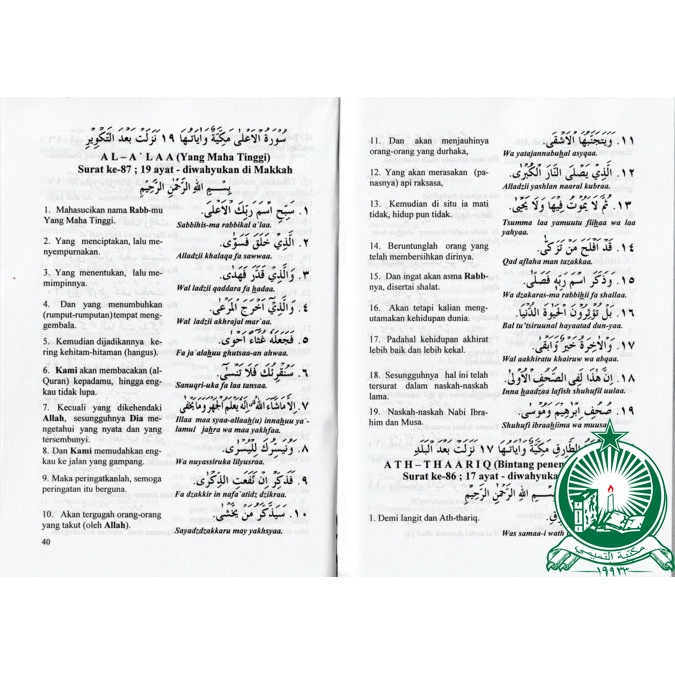 سُوْرَةُ الْاَعْلٰى مَكِّيَّةٌ وَاٰيَاتُهَا ١٩ نَزَلَتْ بَعْدَ التَّكْوِيْرِ
AL – A`LAA (Yang Maha Tinggi)
Surat ke-87 ; 19 ayat - diwahyukan di Makkah
بِسْمِ اللهِ الرَّحْمٰنِ الرَّحِيْمِ
1. Mahasucikan nama Rabb-mu
Yang Maha Tinggi.
١. سَبِّحِ اسْمَ رَبِّكَ الْاَعْلَى.
Sabbihis-ma rabbikal a`laa.
2. Yang menciptakan, lalu me-
nyempurnakan.
٢. الَّذِيْ خَلَقَ فَسَوّٰى.
Alladzii khalaqa fa sawwaa.
3. Yang menentukan, lalu me-
mimpinnya.
٣. وَالَّذِيْ قَدَّرَ فَهَدٰى.
Wal ladzii qaddara fa hadaa.
4. Dan yang menumbuhkan
(rumput-rumputan)tempat meng-
gembala.
٤. وَالَّذِيْٓ اَخْرَجَ الْمَرْعٰى.
Wal ladzii akhrajal mar`aa.
5. Kemudian dijadikannya ke-
ring kehitam-hitaman (hangus).
٥. فَجَعَلَهٗ غُثَاۤءً اَحْوٰى.
Fa ja`alahuu ghutsaa-an ahwaa.
6. Kami akan membacakan (al-
Quran) kepadamu, hingga eng-
kau tidak lupa.
٦. سَنُقْرِئُكَ فَلَا تَنْسٰى.
Sanuqri-uka fa laa tansaa.
7. Kecuali yang dikehendaki
Allah, sesungguhnya Dia me-
ngetahui yang nyata dan yang
tersembunyi.
٧. اِلَّا مَاشَاۤءَ اللهُ اِنَّهٗ يَعْلَمُ الْجَهْرَ وَمَا يَخْفٰى
Illaa maa syaa-allaah(u) innahuu ya`-
lamul jahra wa maa yakhfaa.
8. Dan Kami memudahkan eng-
kau ke jalan yang gampang.
٨. وَنُيَسِّرُكَ لِلْيُسْرٰى.
Wa nuyassiruka lilyusraa.
9. Maka peringatkanlah, semoga
peringatan itu berguna.
٩. فَذَكِّرْ اِنْ نَفَعَتِ الذِّكْرٰى.
Fa dzakkir in nafa`atidz dzikraa.
10. Akan tergugah orang-orang
yang takut (oleh Allah).
١٠. سَيَذَّكَّرُ مَنْ يَخْشٰى.
Sayadzdzakkaru may yakhsyaa.
40
11. Dan akan menjauhinya
orang-orang yang durhaka,
١١. وَيَتَجَنَّبُهَا الْاَشْقَى.
Wa yatajannabuhal asyqaa.
12. Yang akan merasakan (pa-
nasnya) api raksasa,
١٢. الَّذِيْ يَصْلَى النَّارَ الْكُبْرٰى.
Alladzii yashlan naaral kubraa.
13. Kemudian di situ ia mati
tidak, hidup pun tidak.
١٣. ثُمَّ لَا يَمُوْتُ فِيْهَا وَلَا يَحْيٰى.
Tsumma laa yamuutu fiihaa wa laa
yahyaa.
14. Beruntunglah orang yang
telah membersihkan dirinya.
١٤. قَدْ اَفْلَحَ مَنْ تَزَكّٰى.
Qad aflaha man tazakkaa.
15. Dan ingat akan asma Rabb-
nya, disertai shalat.
١٥. وَذَكَرَ اسْمَ رَبِّهٖ فَصَلّٰى.
Wa dzakaras-ma rabbihii fa shallaa.
16. Akan tetapi kalian meng-
utamakan kehidupan dunia.
١٦. بَلْ تُؤْثِرُوْنَ الْحَيٰوةَ الدُّنْيَا.
Bal tu'tsiruunal hayaatad dun-yaa.
17. Padahal kehidupan akhirat
lebih baik dan lebih kekal.
١٧. وَالْاٰخِرَةُ خَيْرٌ وَّاَبْقٰى.
Wal aakhiratu khairuw wa abqaa.
18. Sesungguhnya hal ini telah
tersurat dalam naskah-naskah
lama.
١٨. اِنَّ هٰذَا لَفِى الصُّحُفِ الْاُوْلٰى.
Inna haadzaa lafish shuhufil uulaa.
19. Naskah-naskah Nabi Ibra-
him dan Musa.
١٩. صُحُفِ اِبْرٰهِيْمَ وَمُوْسٰى.
Shuhufi ibraahiima wa muusa
الطَّارِقِ مَكِّيَّةٌ وَاٰيَاتُهَا ١٧ نَزَلَتْ بَعْدَ الْبَلَدِ
ATH – THAARIQ (Bintang penem
Surat ke-86 ; 17 ayat - diwahyuka
بِسْمِ اللهِ الرَّحْمٰنِ الرَّحِيْمِ
1. Demi langit dan Ath-thariq.
Was samaa-i wath
مكتبة التميمي
١٩٩٣٣